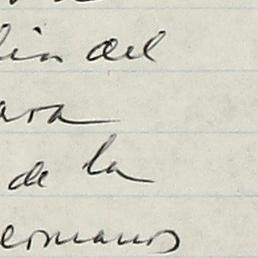 lin del
ara
de la
ermanos